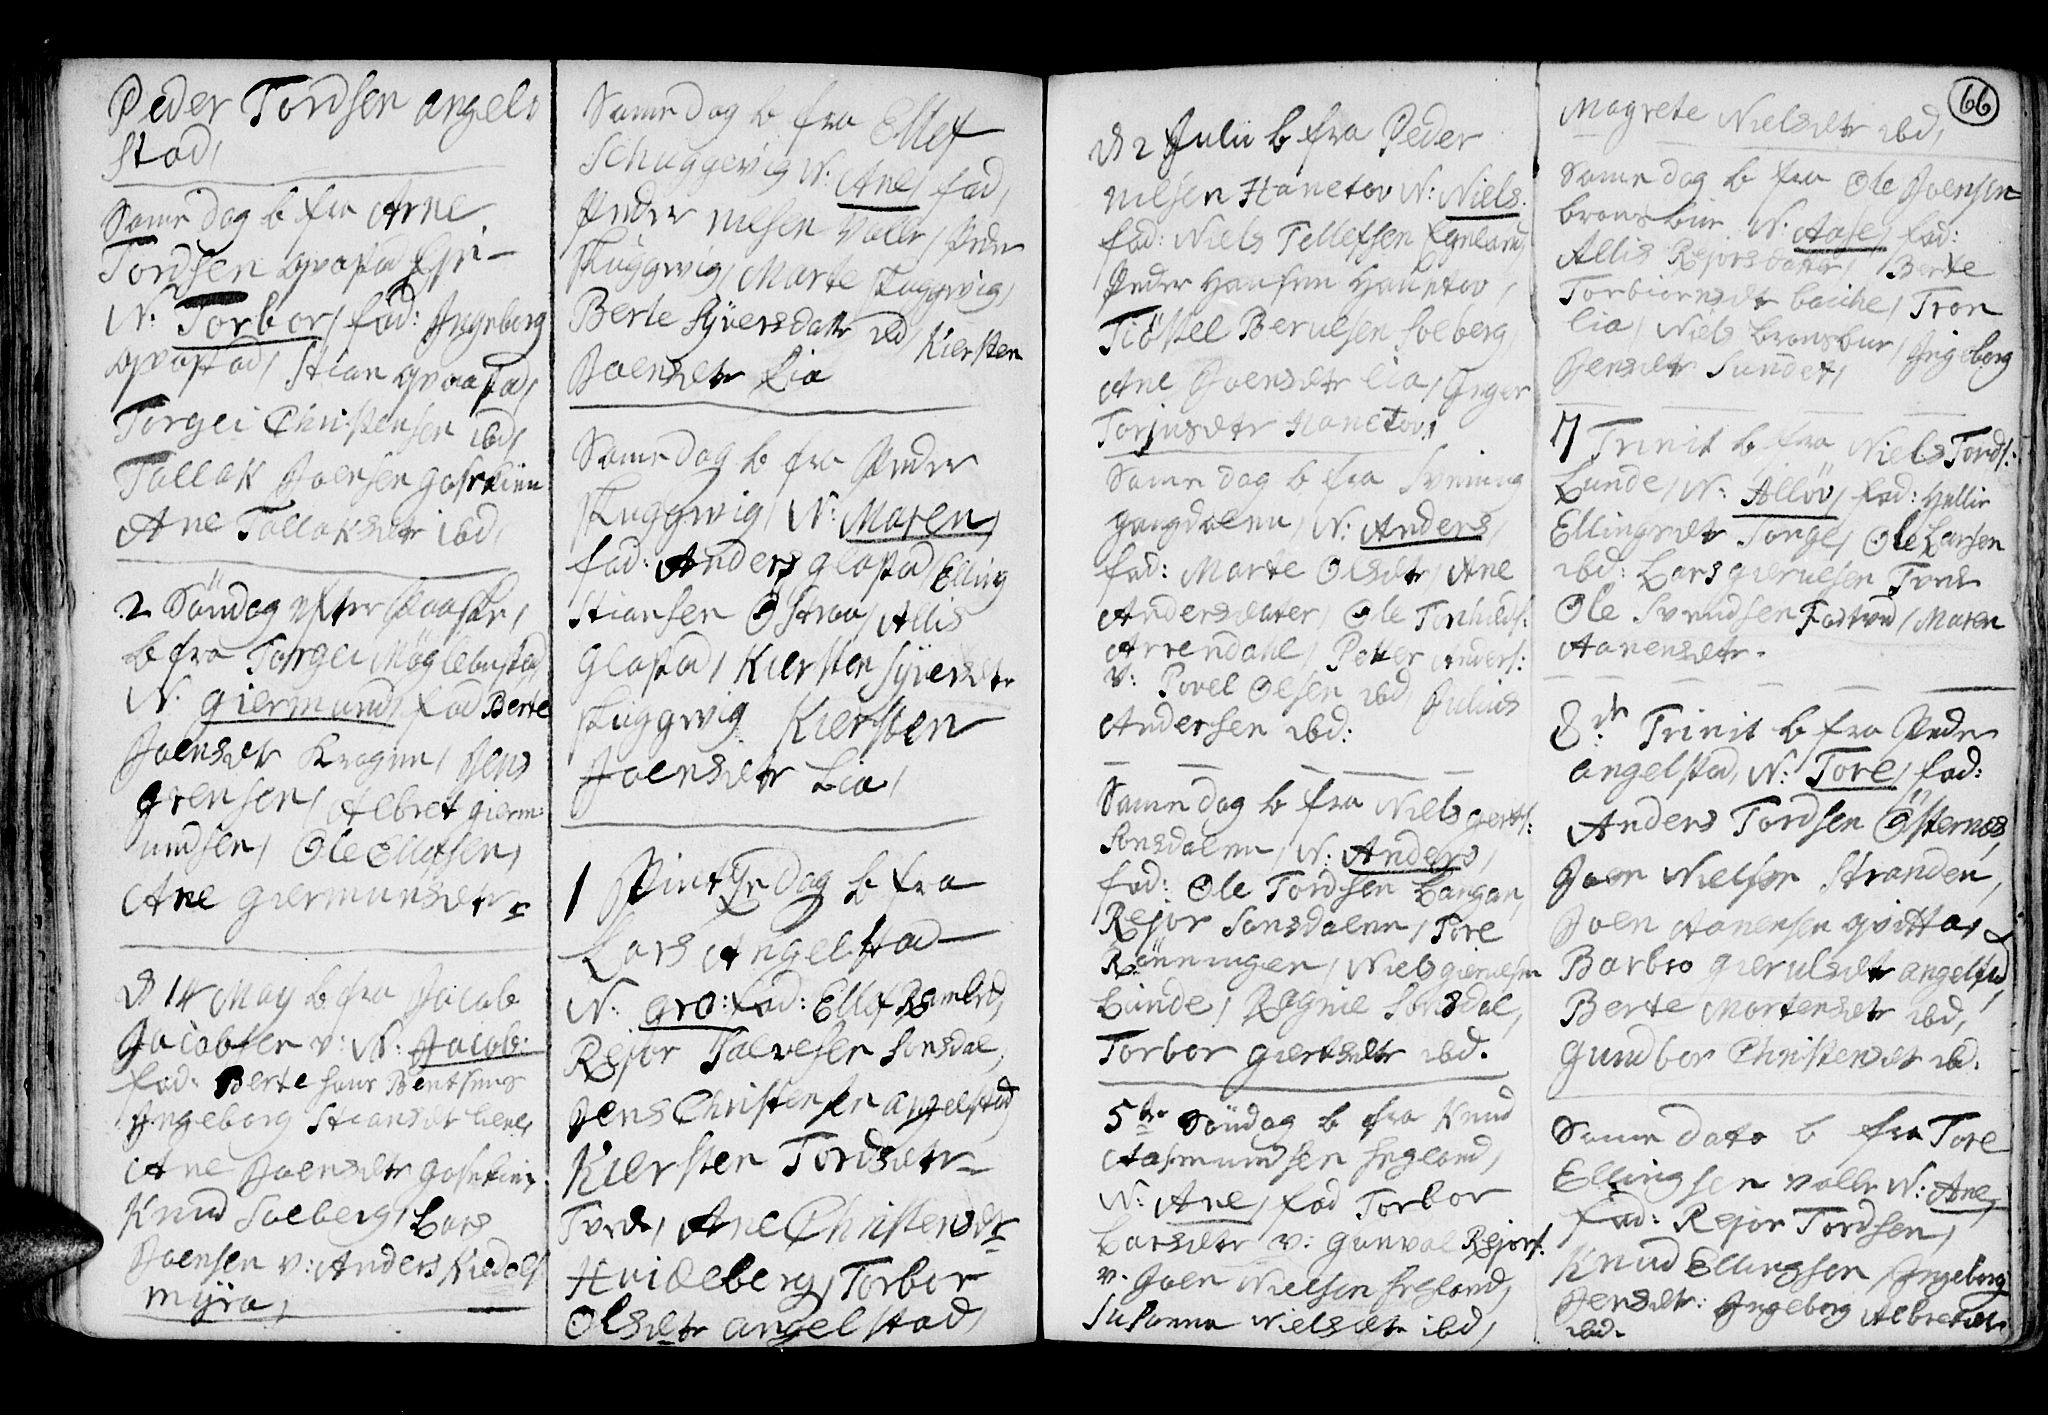 Peder Tordsen angel
stad,
Same dag b fra Arne
Tordsen qvastad
N: Torbor, fad: Ingeborg
qvastad, Stian qvaastad,
Torgei Christensen ibd,
Tallak Joensen
Ane Tallaksdtr ibd,
2 Söndag efter Paaske,
b fra Torgei Möglebustad,
N: giermund, fad Berte
Joensdtr Kragen, Jens
grensen, Albret gierm:
undsen, Ole Ellefsen,
Ane giermunsdtr
d 14 May b fra Jacob
Jacobsen v: N: Jacob:
fad: Berte Hans Bentsens
Ingeborg Stiansdtr
Ane Joensdtr
Knud Solberg, Lars
Joensen v: Anders
myra,
Same dag b fra Ellef
Schuggevig N: Ane, fad,
Peder nilsen Valle, Peder
skuggvig, Marte skuggvig,
Berte Syversdatr ibd, Kiersten
Joensdtr Lia
Same dag b fra Peder
skuggvig, N: Maren,
fad: Anders glastad, Elling
Stiansen Östraa, Allis
Glastad, Kiersten Syversdtr
skuggvig. Kiersten
Joensdtr Lia,
1 Pintze dag b fra
Lars Angelstad
N: gro: fad: Ellef
Rejor Talvesen Sonsdal,
Jens Christensen angelstad
Kiersten Tordsdtr
Tvede, Ane Christensdtr
Hvideberg, Torbor
Olsdtr angelstad,
d 2 Julii b fra Peder
nilsen Hanetov N: Niels.
fad: Niels Tellefsen Egeland,
Peder Hansen Hanetov,
Tiöstel Berulsen Solberg,
Ane Joensdtr Lia, Inger
Torjusdtr Hanetov,
Same dag b fra Svening
gangdalen, N: Anders,
fad: Marte Olsdtr, Ane
Andersdater, Ole
Arrendahl, Petter Anders:
v: Povel Olsen ibd, Julius
Andersen ibd:
Same dag b fra Niels gierts:
Sonsdalen, N: Anders,
fad: Ole Tordsen Langan,
Rejor Sonsdalen, Tore
Rönningen, Niels gierulsen
Lunde, Rägnil Sonsdal,
Torbor giertsdtr ibd.
5te Söndag b fra Knud
Aasmundsen Egeland,
N: Ane, fad Torbor
Larsdtr v: gunval Rejors:
v. Joen Nielsen Egeland,
Susanna Nielsdtr ibd,
66
Magrete Nielsdtr ibd,
Same dag b fra Ole Joensen
bronsbue N: Aase, fad:
Allis Rejorsdatter, Berte
Torbiornsdtr bache, Tron
Lia, Niels bronsbue, Ingeborg
Jensdtr Sundet,
7 Trinit b fra Niels Tords:
Lunde, N: Allöv, fad: Hellie
Ellingsdtr Songe, Ole Larsen
ibd: Lars gierulsen Tved
Ole Svendsen, Maren
Aanensdtr.
8de Trinit b fra Peder
angelstad, N: Tore, fad:
Anders Tordsen Östernæs,
Joen Nielsen Stranden,
Joen Aanensen qvitta,
Barbro gierulsdtr angelstad,
Berte Mortensdtr ibd,
Gundbor Christensdt ibd.
Same dato b fra Tore
Ellingsen Valle N: Ane,
fad: Rejor Tordsen,
Knud Ellingsen, Ingeborg
Jensdtr: Ingeborg Albretsdtr
ibd.